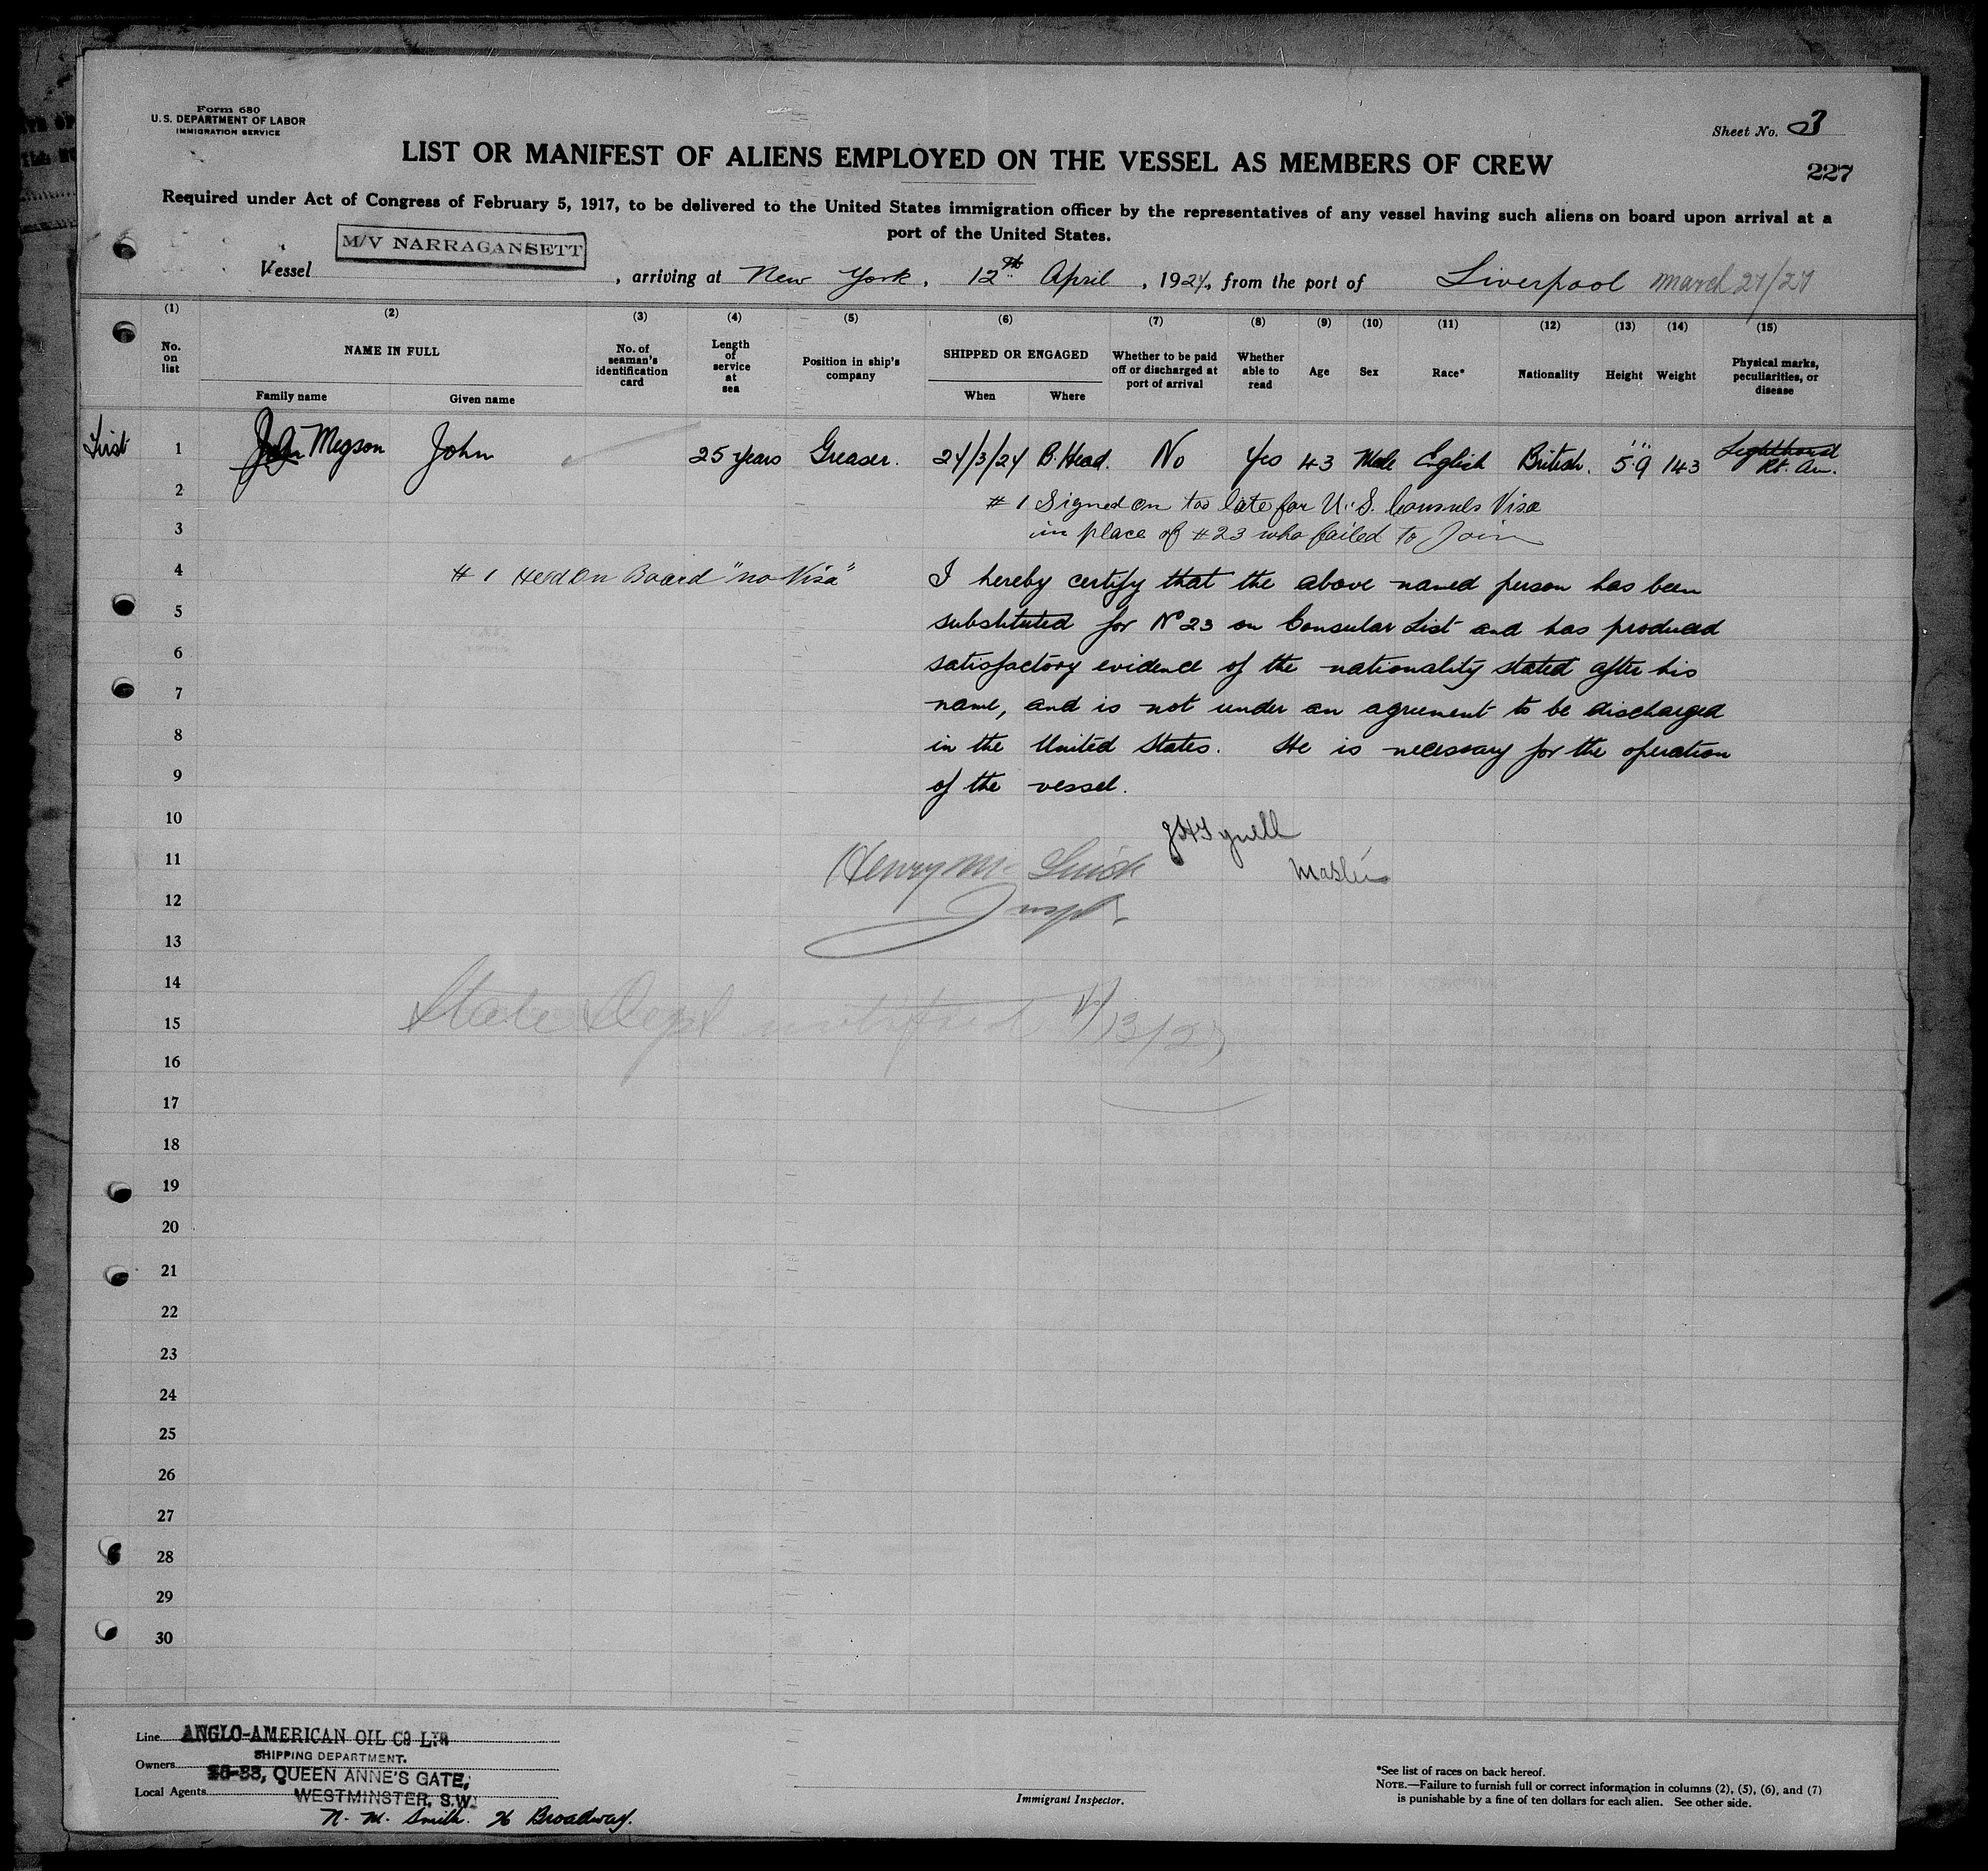 Form 680
U. S. DEPARTMENT OF LABOR
IMMIGRATION SERVICE
Sheet No. 3
LIST OR MANIFEST OF ALIENS EMPLOYED ON THE VESSEL AS MEMBERS OF CREW
227
Required under Act of Congress of February 5, 1917, to be delivered to the United States immigration officer by the representatives of any vessel having such aliens on board upon arrival at a
port of the United States.
Vessel M/V NARRAGANSETT, arriving at New York, 12th April, 1927, from the port of Liverpool March 27/27
(1) (2) (3) (4) (5) (6) (7) (8) (9) (10) (11) (12) (13) (14) (15)
No. on list NAME IN FULL No. of seaman's identification card Length of service at sea Position in ship's company SHIPPED OR ENGAGED Whether to be paid off or discharged at port of arrival Whether able to read Age Sex Race* Nationality Height Weight Physical marks, peculiarities, or disease
Family name Given name When Where
First 1 Megson John 25 years Greaser. 27/3/27 B. Head. No Yes 43 Male English British. 5'9" 143 Rt. Arm.
2 # 1 Signed on too late for U.S. Consuls Visa
3 in place of # 23 who failed to Join
4 # 1 Held on Board "no Visa" I hereby certify that the above named person has been
5 substituted for No 23 on Consular List and has produced
6 satisfactory evidence of the nationality stated after his
7 name, and is not under an agreement to be discharged
8 in the United States. He is necessary for the operation
9 of the vessel.
10
11 Henry Mc Master
12 Inspt.
13
14
15 State Dept notified 4/13/27
16
17
18
19
20
21
22
23
24
25
26
27
28
29
30
Line ANGLO-AMERICAN OIL Co LTD
SHIPPING DEPARTMENT.
Owners 36-38, QUEEN ANNE'S GATE,
Local Agents WESTMINSTER, S.W.
N. M. Smith. 26 Broadway.
Immigrant Inspector.
*See list of races on back hereof.
NOTE.—Failure to furnish full or correct information in columns (2), (5), (6), and (7)
is punishable by a fine of ten dollars for each alien. See other side.